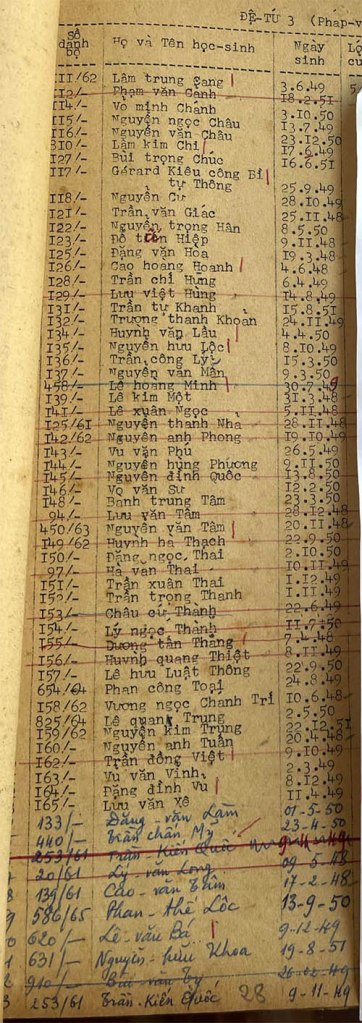 ĐỆ-TỨ 3 (Pháp-v
Số danh bộ Họ và Tên học-sinh Ngày sinh
III/62 Lâm trung Sang 3.6.49
II2/- Phạm văn Cảnh 18.2.51
II4/- Võ minh Chánh 3.10.50
II5/- Nguyễn ngọc Châu I3.7.49
II6/- Nguyễn văn Châu 23.12.50
810/- Lâm kim Chi 17.6.49
I27/- Bùi trọng Chúc 16.6.51
II7/- Gérard Kiêu công Bỉ
tự Thông 25.9.49
II8/- Nguyễn Cư 28.10.49
I2I/- Trần văn Giác 25.11.48
I22/- Nguyễn trọng Hân 8.5.50
I23/- Đỗ tấn Hiệp 9.11.48
I25/- Đặng văn Hoa I9.3.48
I26/- Cao hoàng Hoanh 4.6.48
I28/- Trần chí Hưng 6.4.49
I29/- Lưu việt Hùng I4.8.49
I3I/- Trần tự Khanh I5.8.51
I32/- Trương thanh Khoản 24.11.49
I34/- Huynh văn Lầu 4.4.50
I35/- Nguyễn hưu Lộc 8.10.49
I36/- Trần công Lý I5.3.50
I37/- Nguyễn văn Mận 9.3.50
458/- Lê hoàng Minh 30.7.49
I39/- Lê kim Một 31.3.48
I4I/- Lê xuân Ngọc 5.11.48
I25/61 Nguyễn thanh Nhà 28.11.48
I42/62 Nguyễn anh Phong I9.10.49
I43/- Vu văn Phú 26.5.49
I44/- Nguyễn hùng Phương 9.11.50
I45/- Nguyễn đình Quốc I3.8.50
I46/- Vo văn Sư I2.2.50
I48/- Banh trung Tâm 23.3.50
94/- Lưu văn Tâm 28.12.48
450/63 Nguyễn văn Tâm 20.11.48
I49/62 Huynh hà Thạch 22.9.50
I50/- Đặng ngọc Thai 2.10.50
97/- Hà văn Thai 10.11.49
I5I/- Trần xuân Thai 1.12.49
I52/- Trần trọng Thanh 1.11.49
I53/- Châu cử Thành 22.6.49
I54/- Lý ngọc Thành 11.7.50
I55/- Dương tấn Thăng 7.4.48
I56/- Huynh quang Thiệt 8.11.49
I57/- Lê hưu Luật Thông 22.9.50
654/64 Phan công Toại 24.8.49
I58/62 Vương ngọc Chanh Trí 10.6.48
825/64 Lê quang Trung 2.5.50
I59/62 Nguyễn kim Trung 22.12.51
I60/- Nguyễn anh Tuấn 20.4.48
I62/- Trần đông Việt 9.10.49
I63/- Vu văn Vinh 2.3.49
I64/- Đặng đình Vu 8.12.49
I65/- Lưu văn Xê 11.4.49
133/- Đặng-văn Lâm 01-5-50
440/- Trần chấn Mỹ 23-4-50
253/61 Trần-Kiến Quốc
20/61 Lý-văn Long 09-5-48
139/61 Cao-văn Tâm 17-2-48
586/65 Phan-thế Lộc 13-9-50
620/- Lê-văn Bá 9-12-49
631/- Nguyễn-hữu Khoa 19-8-51
910/- Bùi văn Ty 26-02-49
253/61 Trần-Kiến Quốc 28 9-11-49